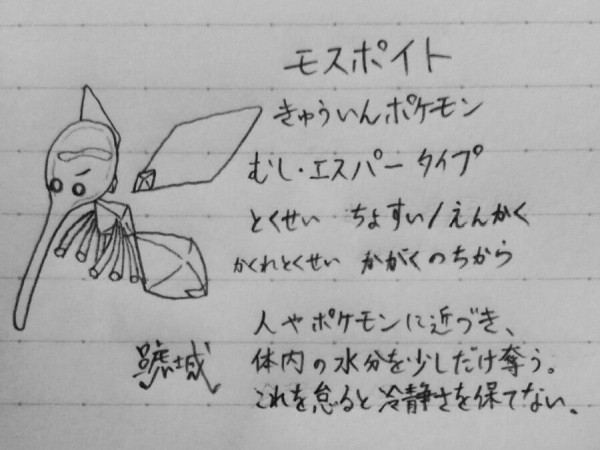 モスポイト
きゅういんポケモン
むし・エスパータイプ
とくせい ちょすい/えんかく
かくれとくせい かがくのちから
人やポケモンに近づき、
体内の水分を少しだけ奪う。
これを怠ると冷静さを保てない。